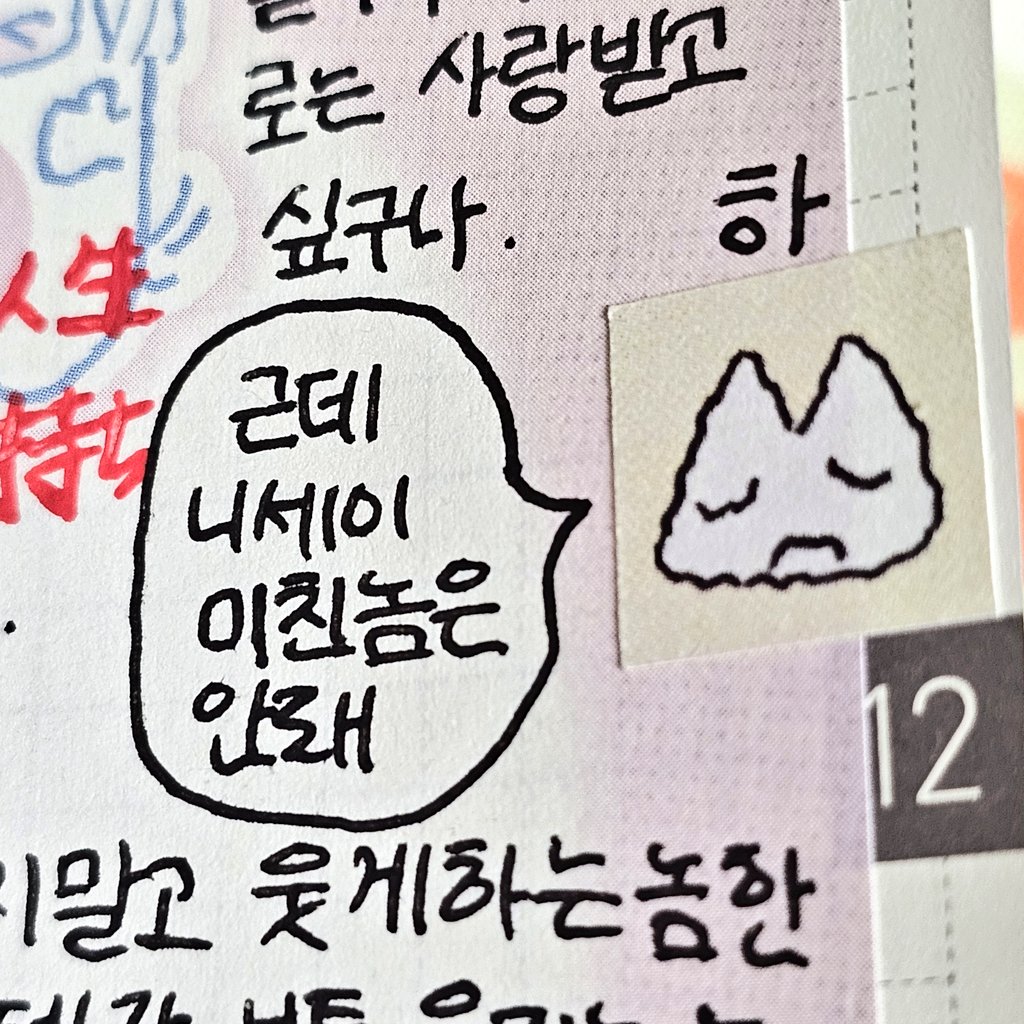 로는 사랑받고
싶구나.
하
人生
持ち
근데
니세이
미친놈은
안돼
12
말고 웃게하는놈한